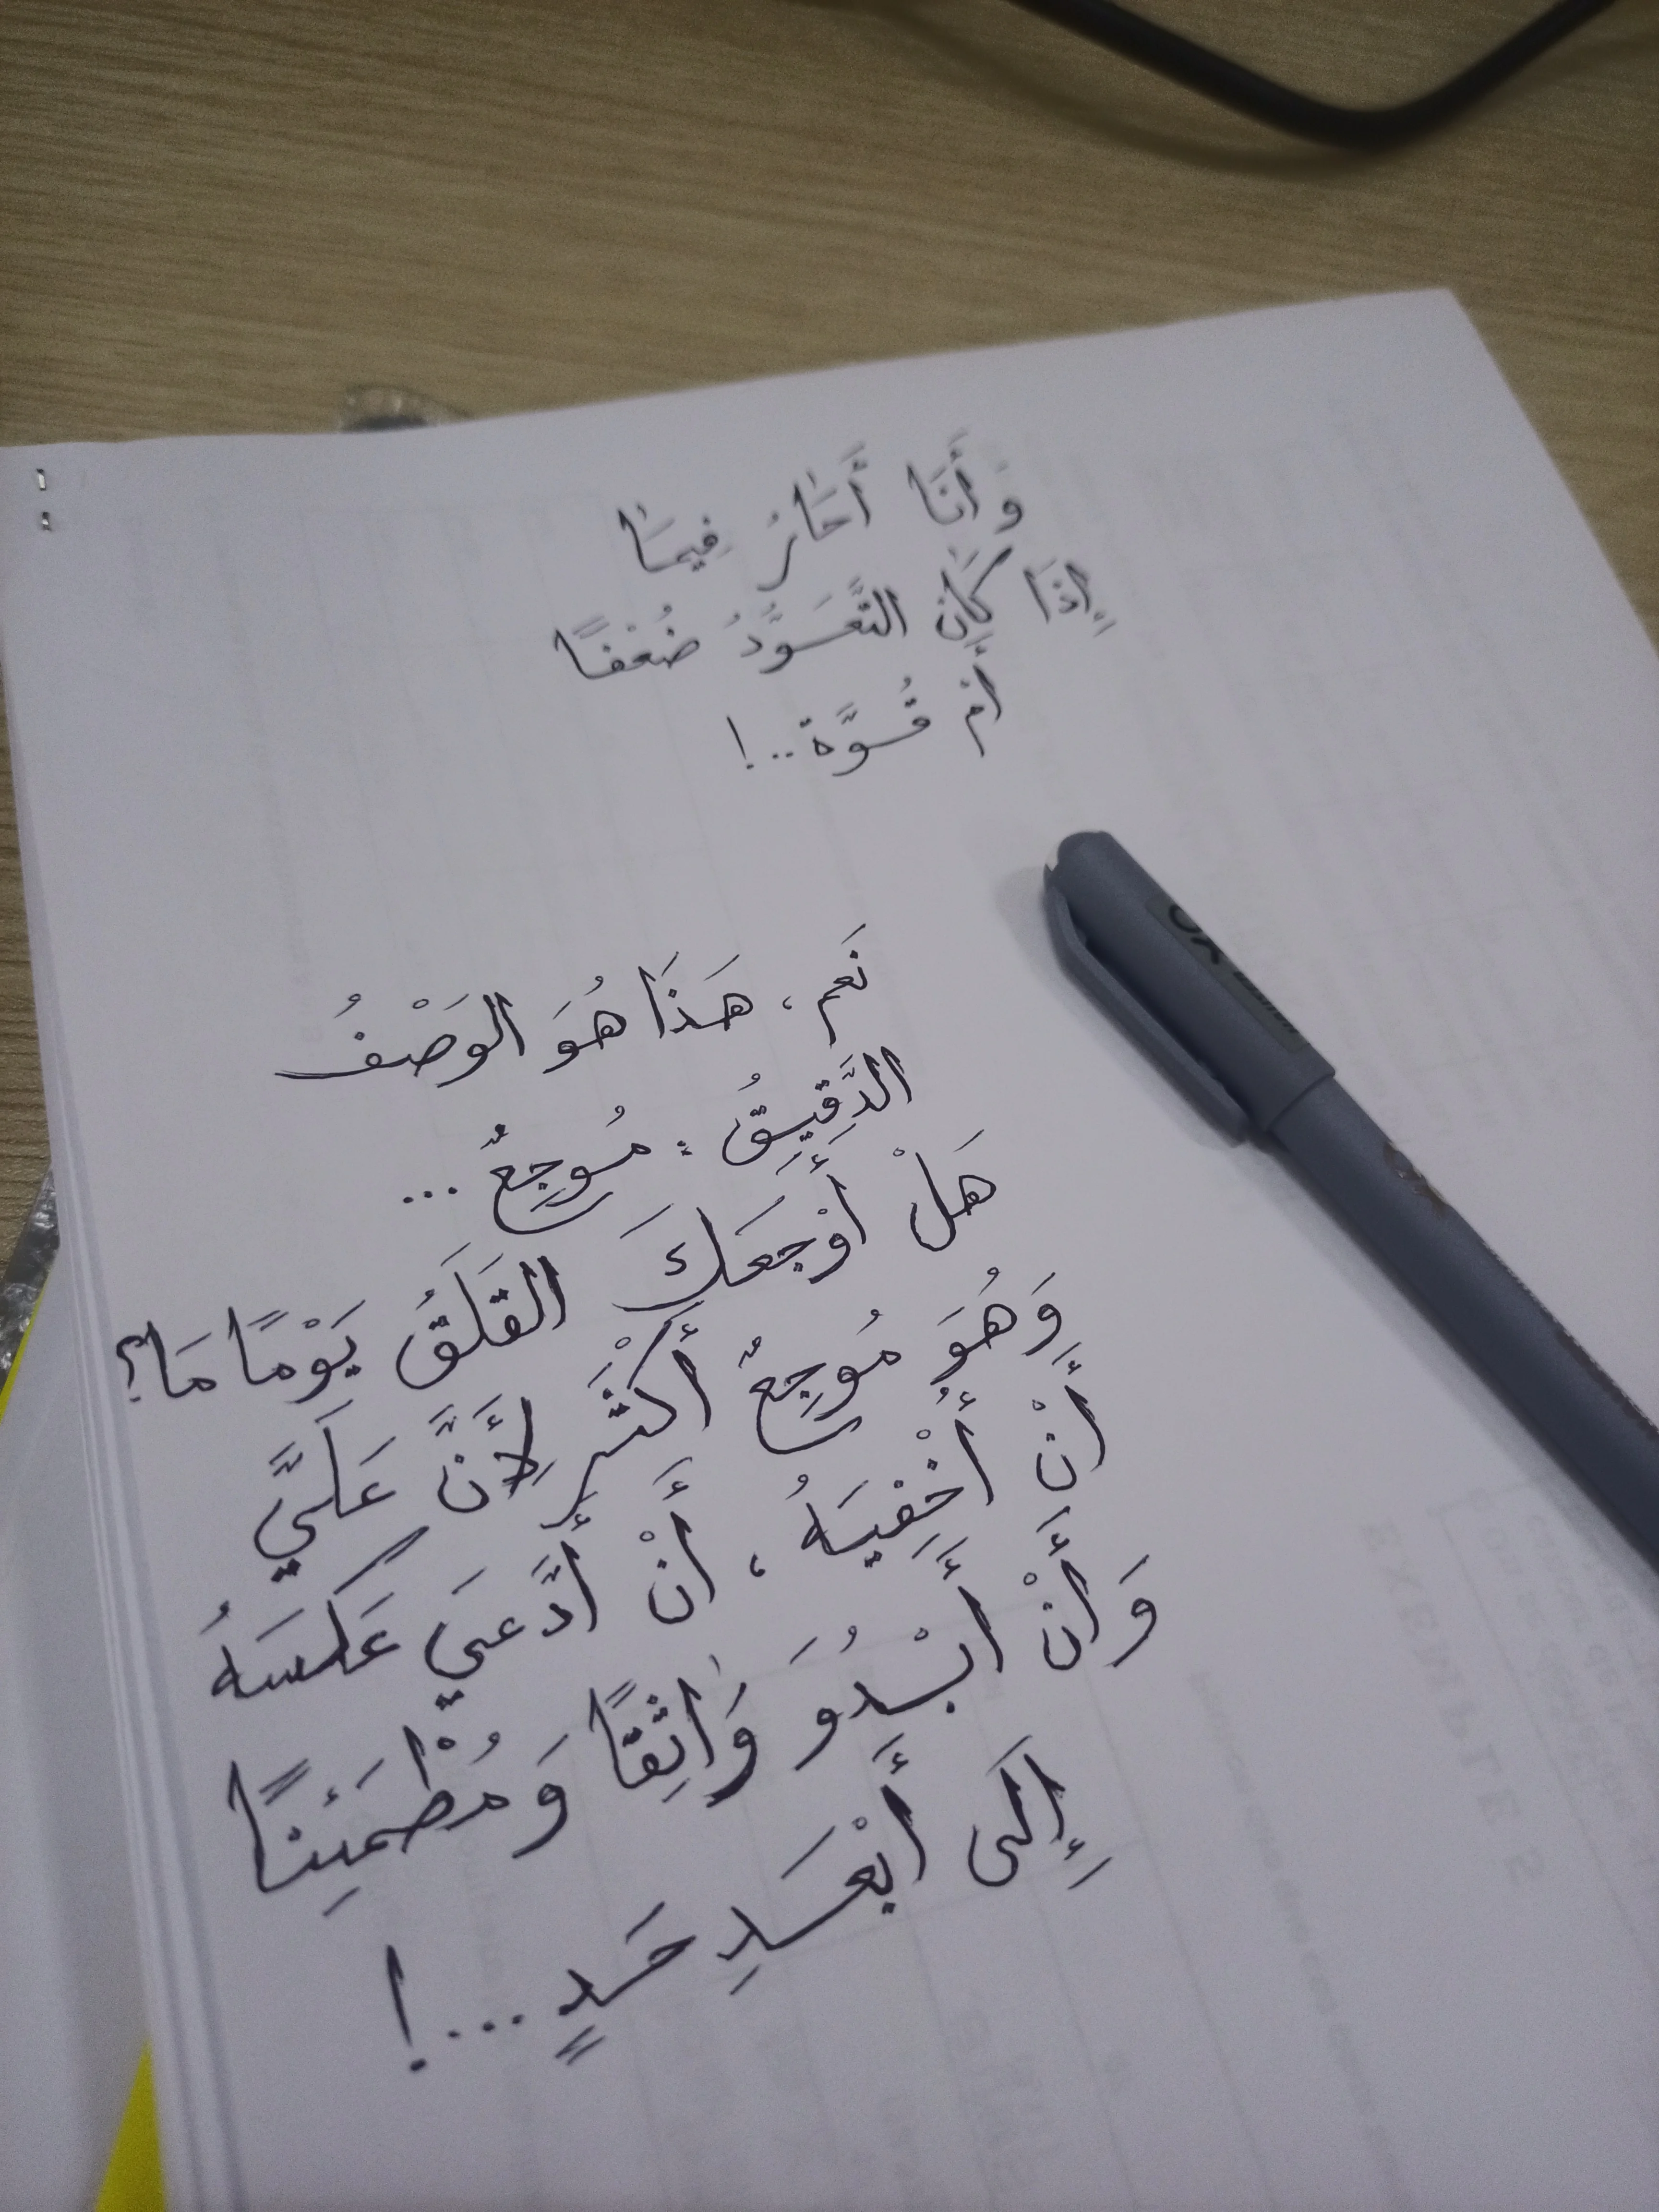 وَأَنَا أَحَارُ فِيمَا
إِذَا كَانَ التَّعَوُّدُ ضُعْفًا
أَمْ قُوَّة..!
نَعَم، هَذَا هُوَ الوَصْفُ
الدَّقِيقُ : مُوجِعٌ ...
هَلْ أَوْجَعَكَ القَلَقُ يَوْمًا مَا؟
وَهُوَ مُوجِعٌ أَكْثَر لِأَنَّ عَلَيَّ
أَنْ أُخْفِيَهُ، أَنْ أَدَّعيَ عَكسَهُ
وَأَنْ أَبْدُوَ وَاثِقًا وَمُطْمَئِنًا
إِلَى أَبْعَدِ حَدٍ ...!